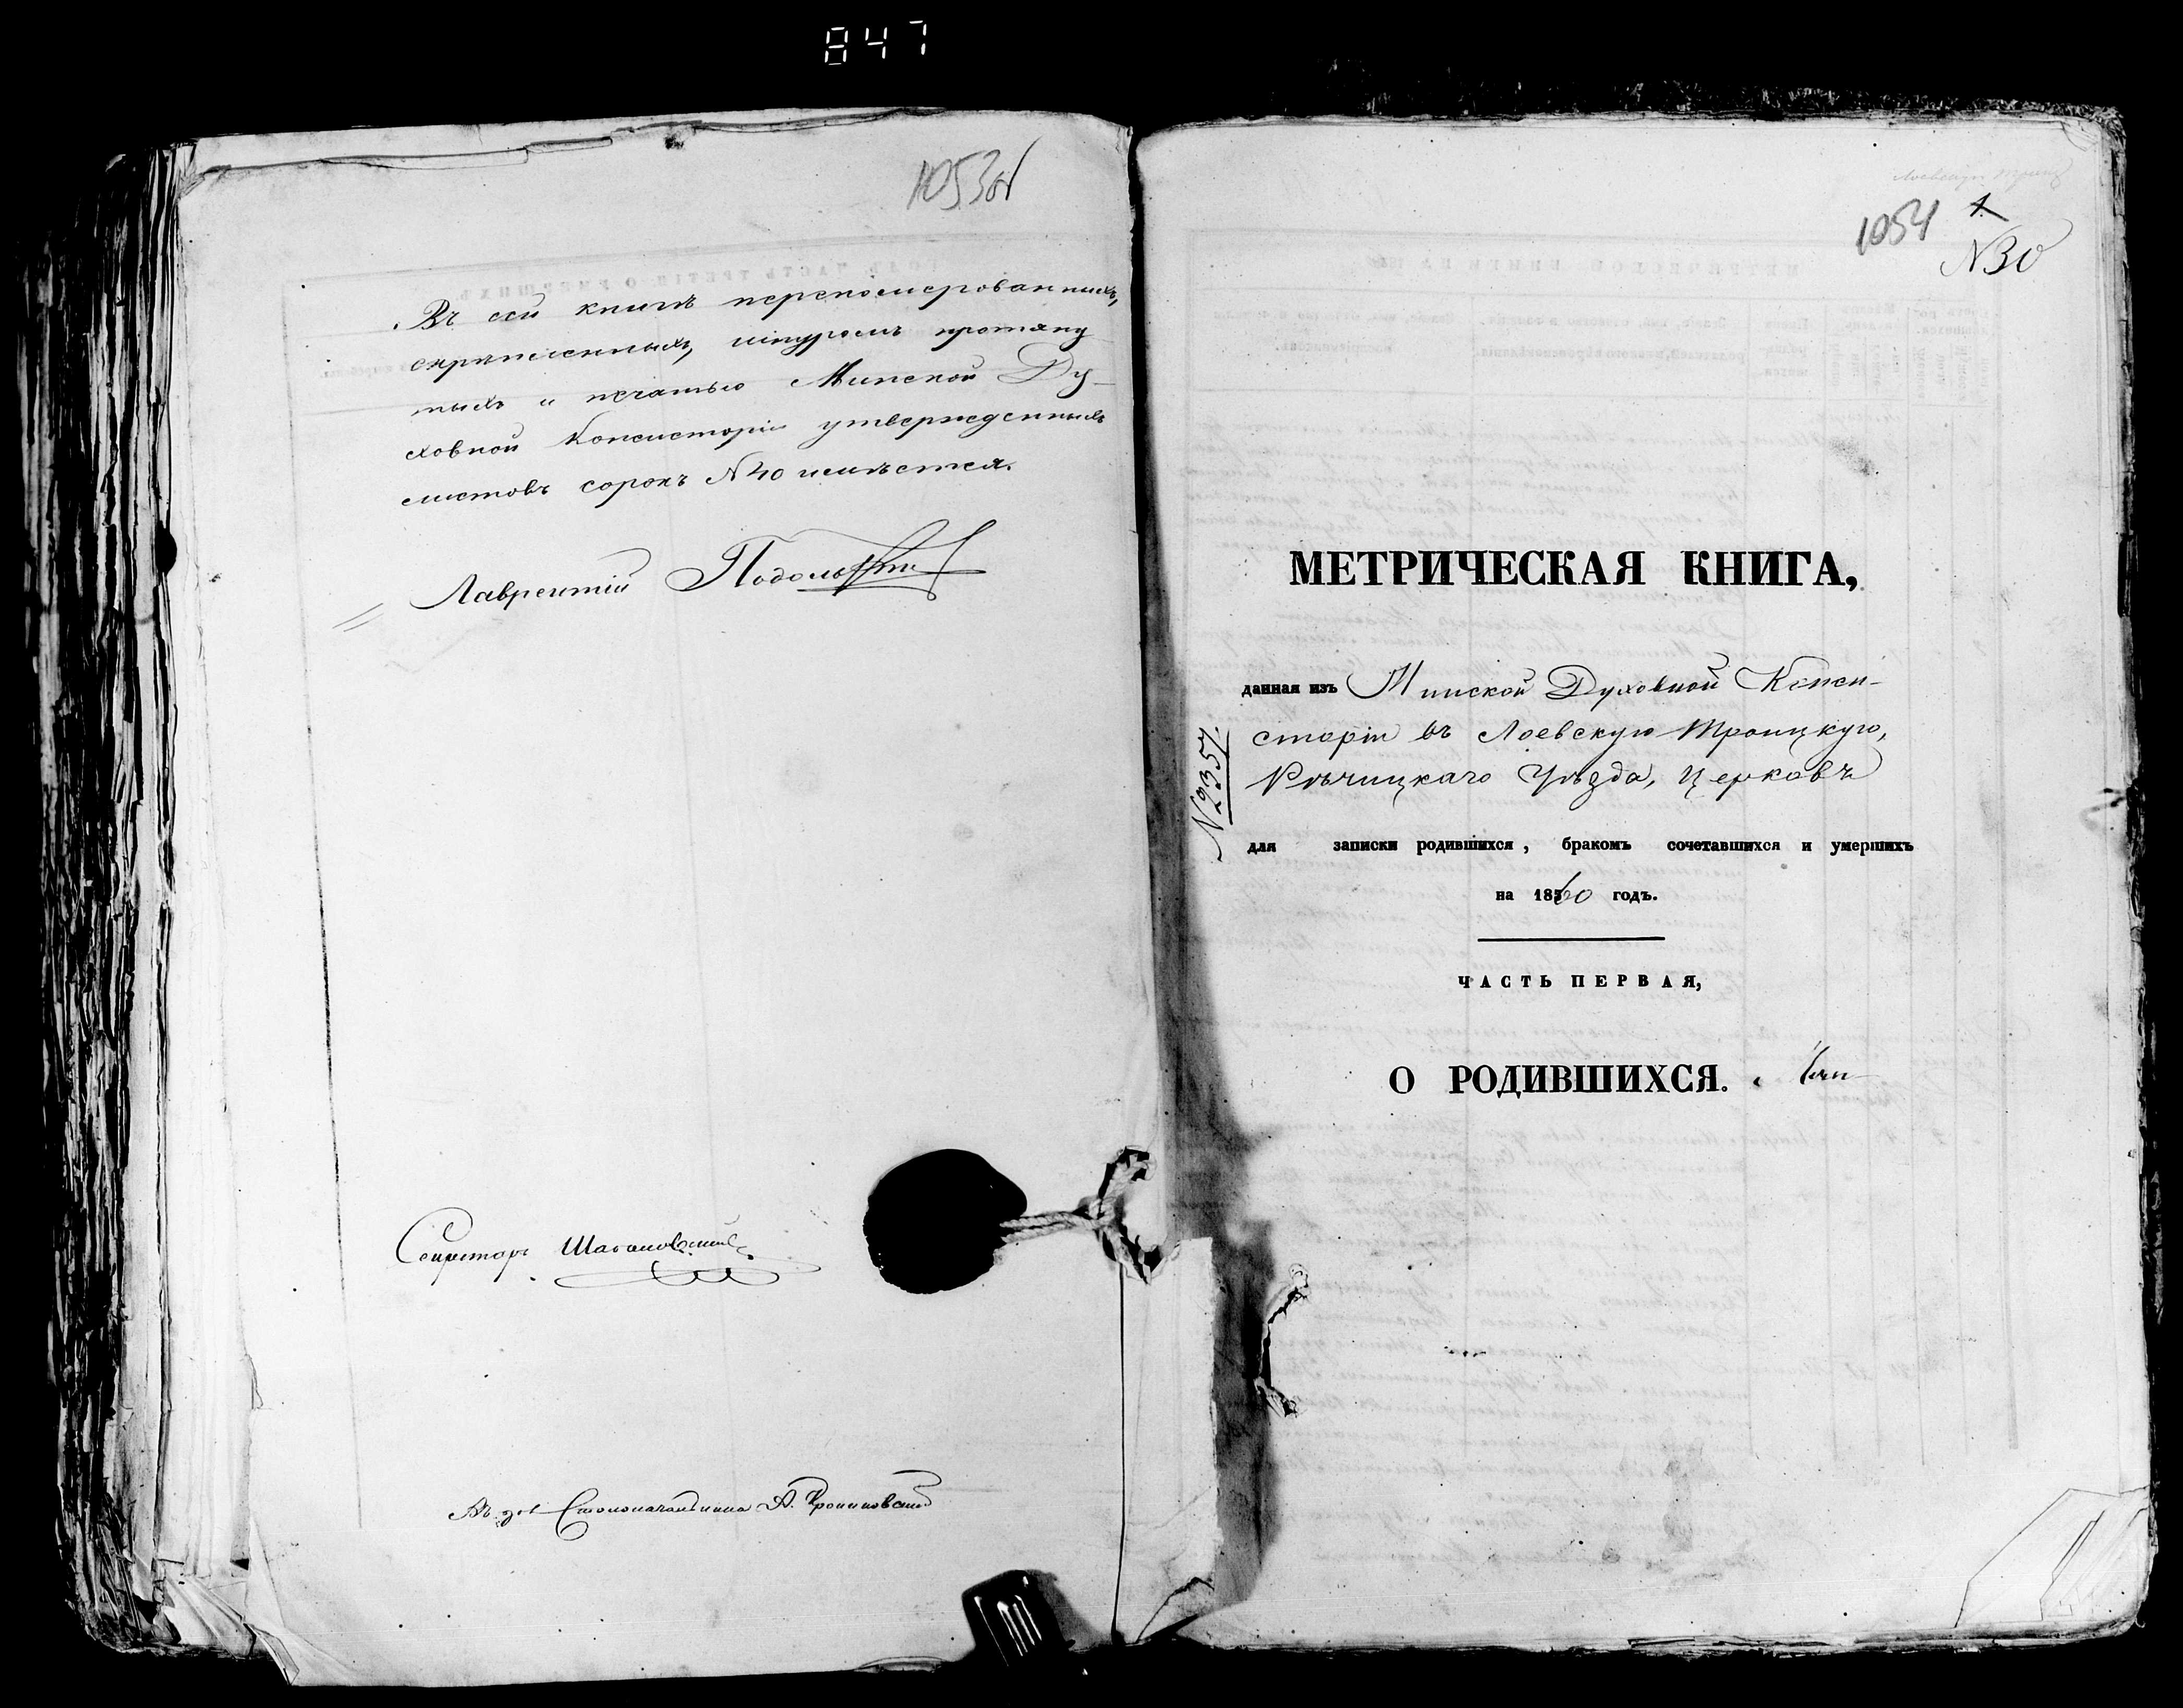 847
1053об
Въ сей книгѣ перенумерованныхъ,
скрѣпленныхъ, шнуромъ протяну
тыхъ и печатью Минской Ду-
ховной Консисторіи утвержденныхъ
листовъ сорокъ N 40 имѣется.
Лаврентій
Секретарь
Столоначальника А.
1054
1.
N 30
МЕТРИЧЕСКАЯ КНИГА,
данная изъ Минской Духовной Конси-
сторіи въ Лоевскую Троицкую,
Рѣчицкаго Уѣзда, Церковь
N 2357.
для записки родившихся, бракомъ сочетавшихся и умершихъ
на 1860 годъ.
ЧАСТЬ ПЕРВАЯ,
О РОДИВШИХСЯ.